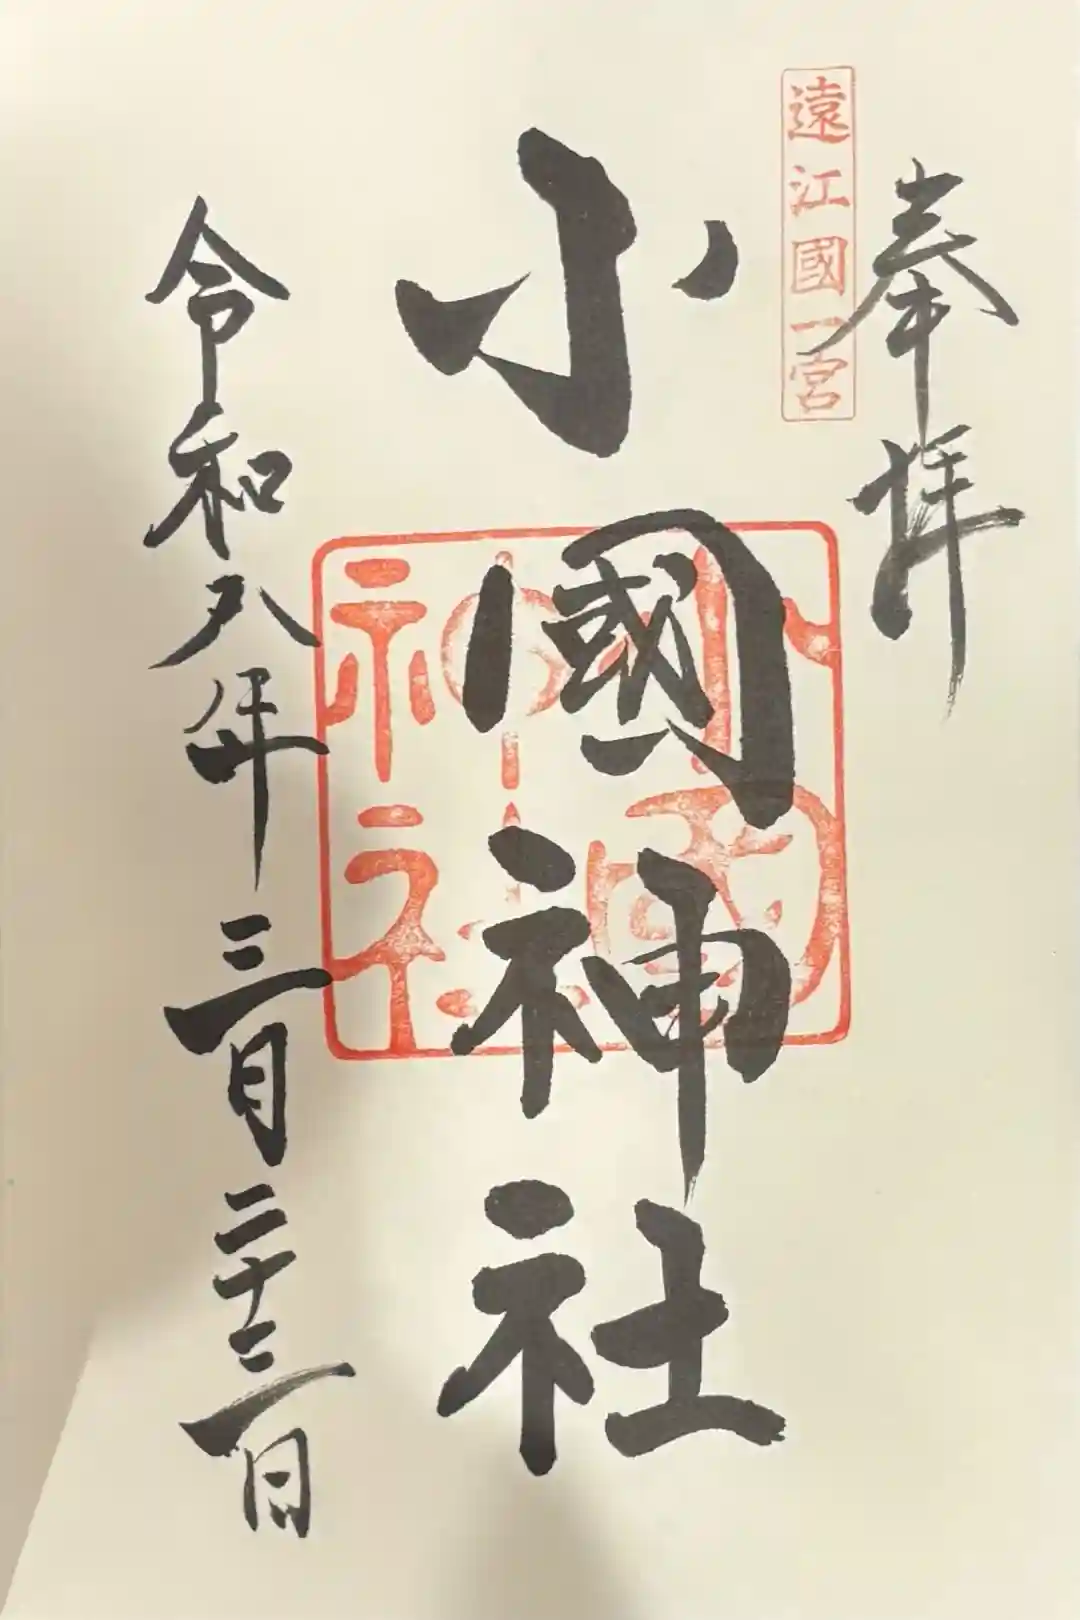 奉拝
遠江國一宮
小國神社
小國神社
令和八年 三月二十三日